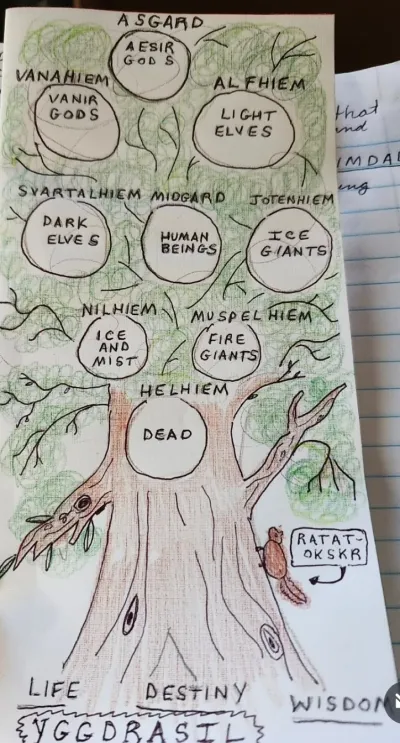 ASGARD
AESIR
GODS
VANAHIEM
VANIR
GODS
ALFHIEM
LIGHT
ELVES
SVARTALHIEM MIDGARD JOTENHIEM
DARK
ELVES
HUMAN
BEINGS
ICE
GIANTS
NILHIEM
ICE
AND
MIST
MUSPELHIEM
FIRE
GIANTS
HELHIEM
DEAD
RATAT-
OKSKR
LIFE DESTINY WISDOM
YGGDRASIL
that
IMDAL